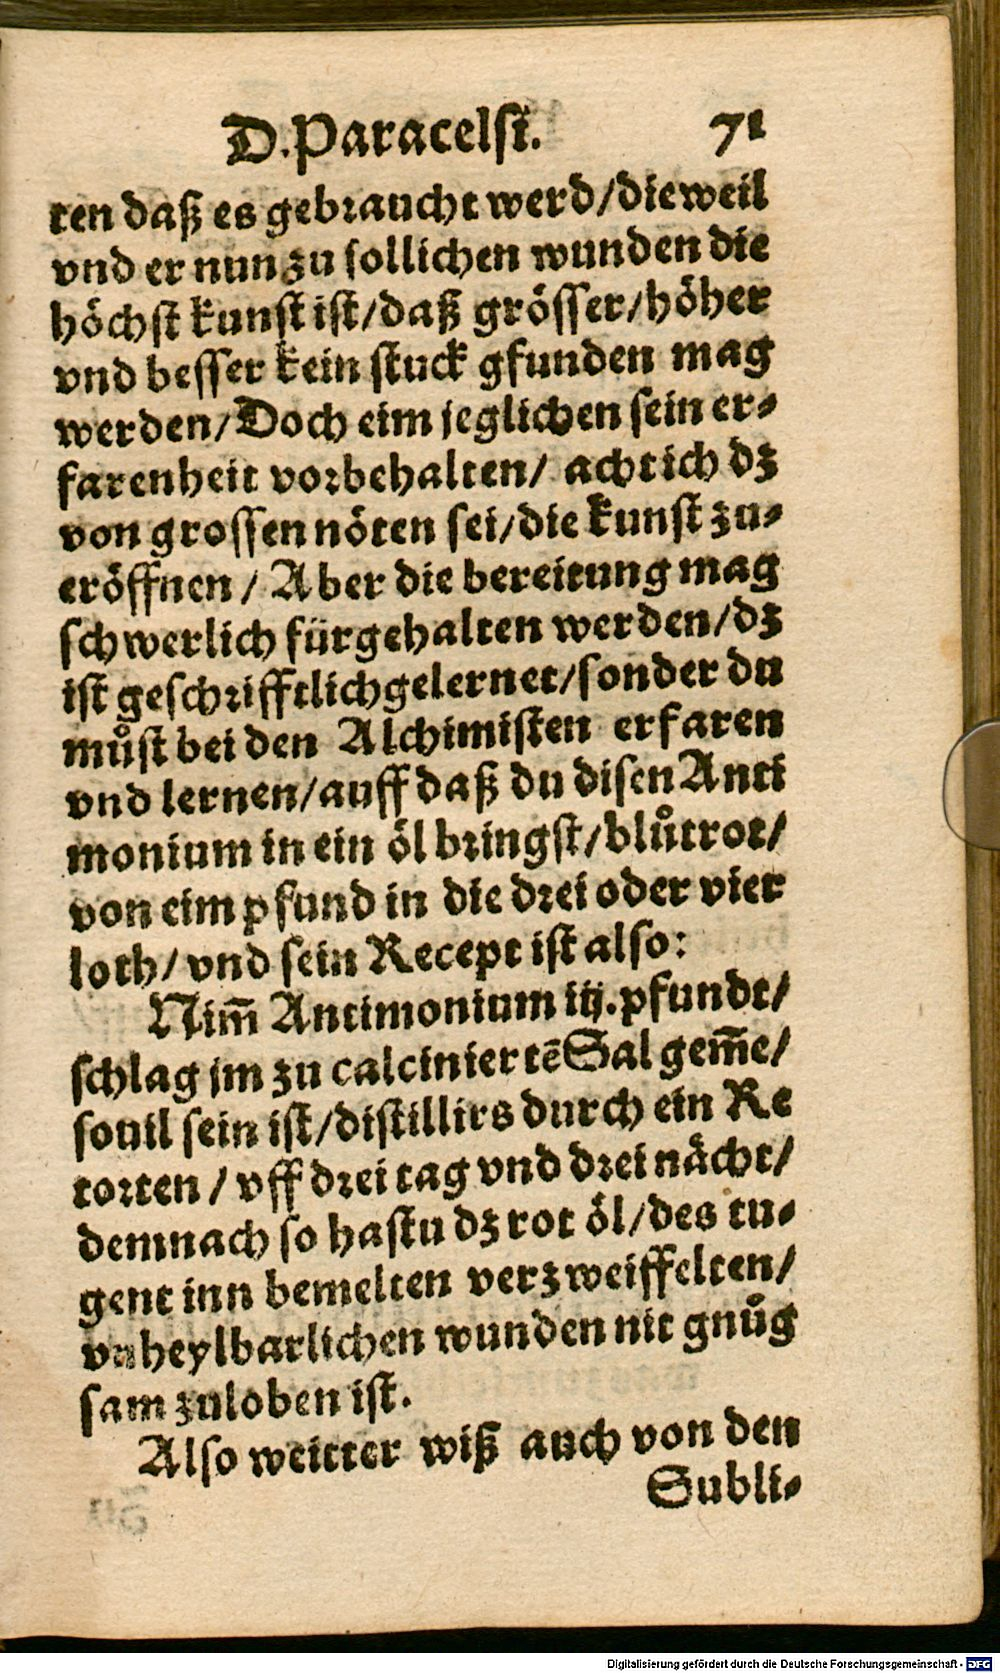 D. Paracelsi. 71
ten daß es gebraucht werd/dieweil
vnd er nun zu sollichen wunden die
höchst kunst ist/daß grösser/höher
vnd besser kein stuck gfunden mag
werden/Doch eim jeglichen sein er⸗
farenheit vorbehalten/ acht ich dz
von grossen nöten sei/die kunst zu⸗
eröffnen/ Aber die bereitung mag
schwerlich fürgehalten werden/dz
ist geschrifftlich gelernet/sonder du
můst bei den Alchimisten erfaren
vnd lernen/auff daß du disen Anti
monium in ein öl bringst/blůtrot/
von eim pfund in die drei oder vier
loth/vnd sein Recept ist also:
Nim̃ Antimonium iij. pfundt/
schlag jm zu calciniertẽ Sal gem̃e/
souil sein ist/distillirs durch ein Re
torten/vff drei tag vnd drei nächt/
demnach so hastu dz rot öl/des tu⸗
gent inn bemelten verzweiffelten/
vnheylbarlichen wunden nit gnůg
sam zuloben ist.
Also weitter wiß auch von den
Subli⸗
Digitalisierung gefördert durch die Deutsche Forschungsgemeinschaft - DFG